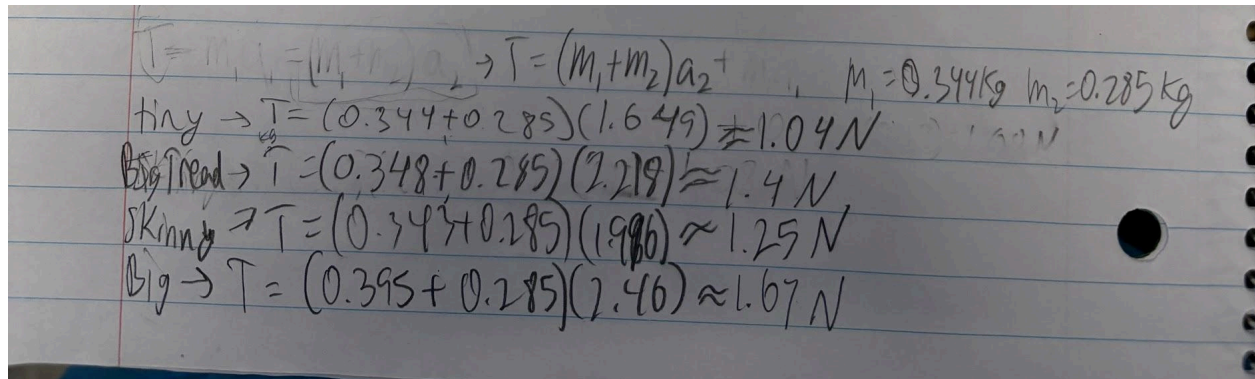 T = m₁a₁ = (m₁+m₂)a₂ → T = (m₁+m₂)a₂ + m₁ = 0.344Kg m₂ = 0.285 kg
tiny → T = (0.344+0.285)(1.649) ≈ 1.04 N
kg
Big Tread → T = (0.348+0.285)(2.218) ≈ 1.4 N
Skinny → T = (0.343+0.285)(1.986) ≈ 1.25 N
Big → T = (0.395 + 0.285)(2.46) ≈ 1.67 N